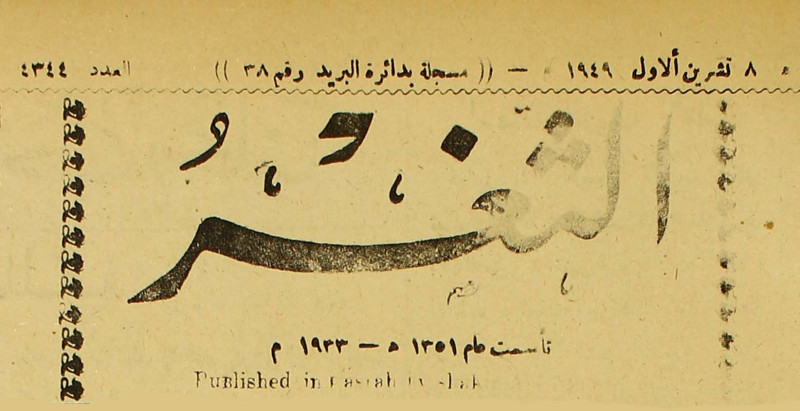 ٨ تشرين ألاول ١٩٤٩ — (( مسجلة بدائرة البريد رقم ٣٨ )) العدد ٤٣٤٤
الثغر
تاسست عام ١٣٥١ ه — ١٩٣٣ م
Published in